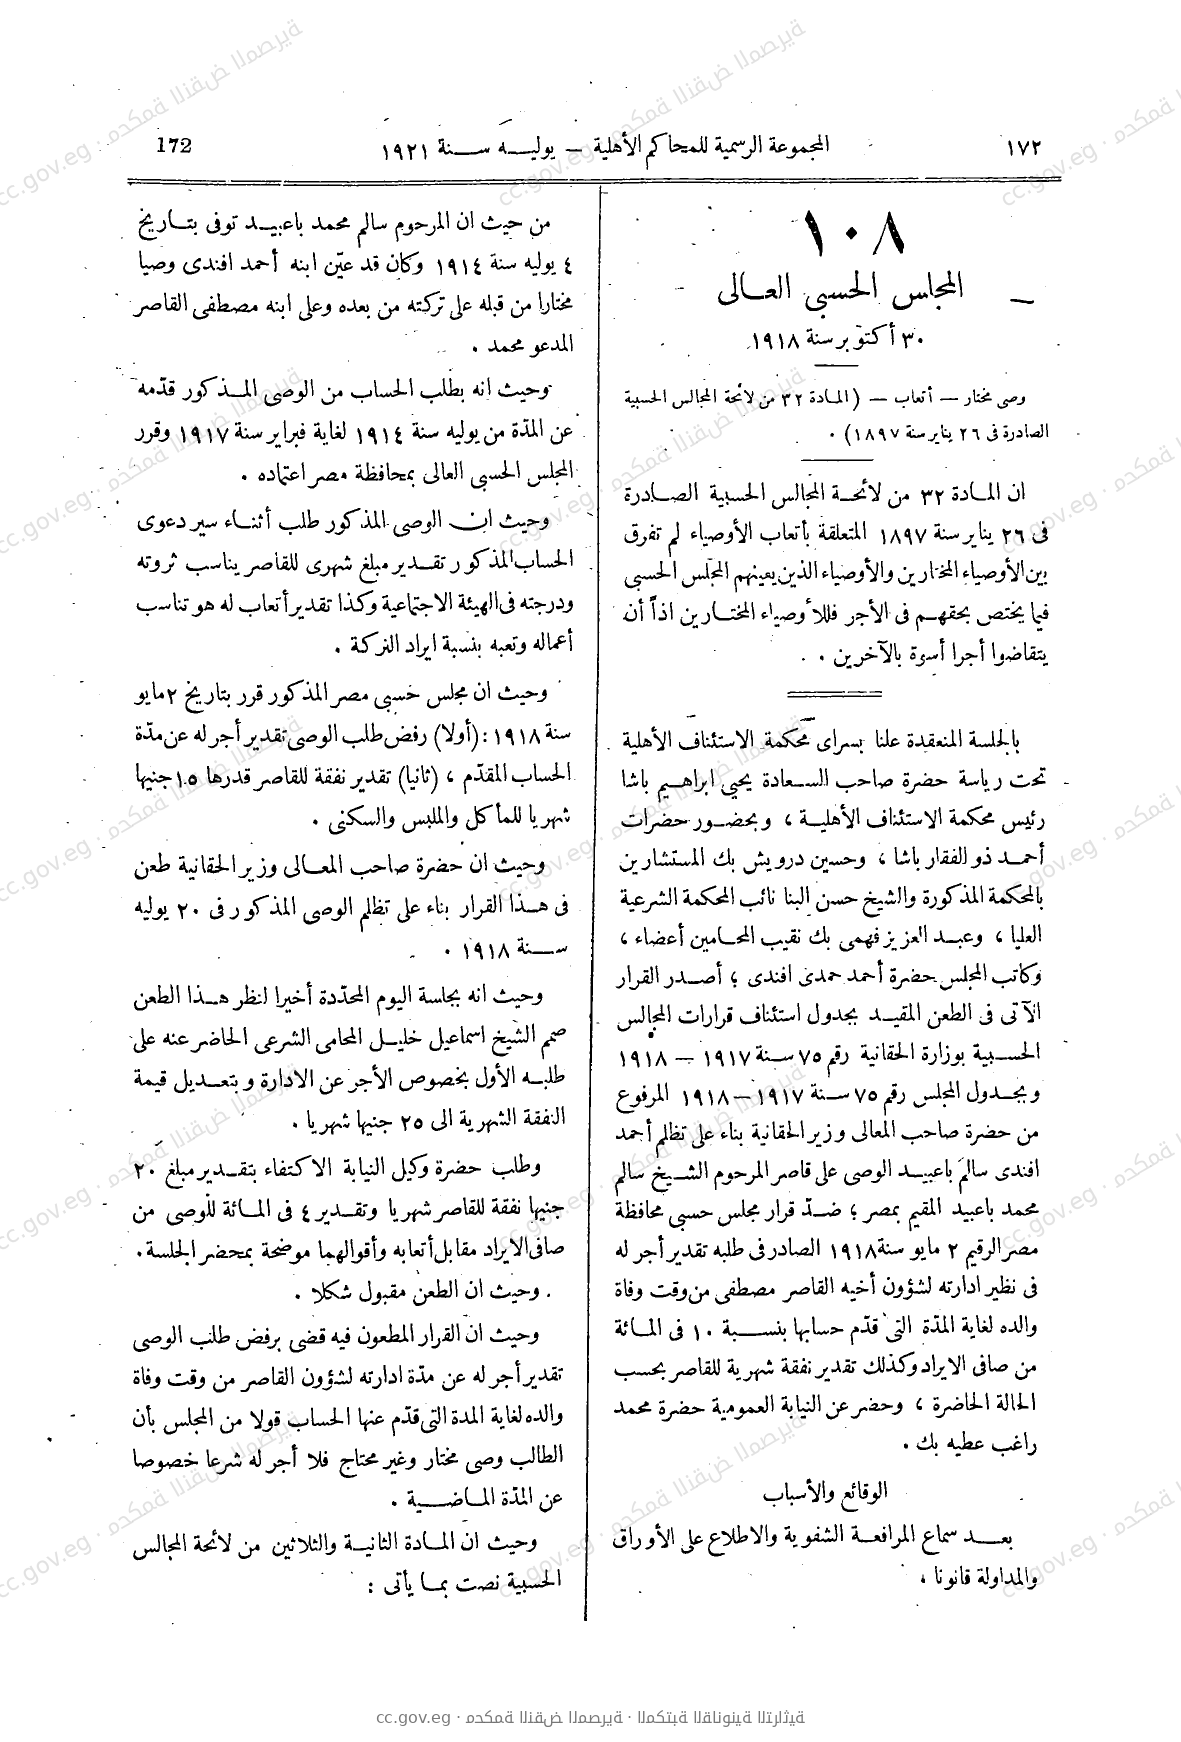 ١٧٢
المجموعة الرسمية للمحاكم الأهلية – يوليه سنة ١٩٢١
172
١٠٨
المجلس الحسبى العالى
٣٠ أكتوبر سنة ١٩١٨
وصى مختار – أتعاب – (المادة ٣٢ من لائحة المجالس الحسبية
الصادرة فى ٢٦ يناير سنة ١٨٩٧) .
ان المادة ٣٢ من لائحة المجالس الحسبية الصادرة
فى ٢٦ يناير سنة ١٨٩٧ المتعلقة بأتعاب الأوصياء لم تفرق
بين الأوصياء المختارين والأوصياء الذين يعينهم المجلس الحسبى
فيما يختص بحقهم فى الأجر فللأوصياء المختارين اذاً أن
يتقاضوا أجرا أسوة بالآخرين .
بالجلسة المنعقدة علنا بسراى محكمة الاستئناف الأهلية
تحت رياسة حضرة صاحب السعادة يحيى ابراهيم باشا
رئيس محكمة الاستئناف الأهلية ، وبحضور حضرات
أحمد ذو الفقار باشا ، وحسين درويش بك المستشارين
بالمحكمة المذكورة والشيخ حسن البنا نائب المحكمة الشرعية
العليا ، وعبد العزيز فهمى بك نقيب المحامين أعضاء ،
وكاتب المجلس حضرة أحمد حمدى افندى ؛ أصدر القرار
الآتى فى الطعن المقيد بجدول استئناف قرارات المجالس
الحسبية بوزارة الحقانية رقم ٧٥ سنة ١٩١٧ – ١٩١٨
وبجدول المجلس رقم ٧٥ سنة ١٩١٧ – ١٩١٨ المرفوع
من حضرة صاحب المعالى وزير الحقانية بناء على تظلم أحمد
افندى سالم باعبيد الوصى على قاصر المرحوم الشيخ سالم
محمد باعبيد المقيم بمصر ؛ ضدّ قرار مجلس حسبى محافظة
مصر الرقيم ٢ مايو سنة ١٩١٨ الصادر فى طلبه تقدير أجر له
فى نظير ادارته لشؤون أخيه القاصر مصطفى من وقت وفاة
والده لغاية المدّة التى قدّم حسابها بنسبة ١٠ فى المائة
من صافى الايراد وكذلك تقدير نفقة شهرية للقاصر بحسب
الحالة الحاضرة ، وحضر عن النيابة العمومية حضرة محمد
راغب عطيه بك .
الوقائع والأسباب
بعد سماع المرافعة الشفوية والاطلاع على الأوراق
والمداولة قانونا ،
من حيث ان المرحوم سالم محمد باعبيد توفى بتاريخ
٤ يوليه سنة ١٩١٤ وكان قد عيّن ابنه أحمد افندى وصيا
مختارا من قبله على تركته من بعده وعلى ابنه مصطفى القاصر
المدعو محمد .
وحيث انه بطلب الحساب من الوصى المذكور قدّمه
عن المدّة من يوليه سنة ١٩١٤ لغاية فبراير سنة ١٩١٧ وقرر
المجلس الحسبى العالى بمحافظة مصر اعتماده .
وحيث ان الوصى المذكور طلب أثناء سير دعوى
الحساب المذكور تقدير مبلغ شهرى للقاصر يناسب ثروته
ودرجته فى الهيئة الاجتماعية وكذا تقدير أتعاب له هو تناسب
أعماله وتعبه بنسبة ايراد التركة .
وحيث ان مجلس حسبى مصر المذكور قرر بتاريخ ٢ مايو
سنة ١٩١٨ : (أولا) رفض طلب الوصى تقدير أجر له عن مدّة
الحساب المقدّم ، (ثانيا) تقدير نفقة للقاصر قدرها ١٥ جنيها
شهريا للمأكل والملبس والسكنى .
وحيث ان حضرة صاحب المعالى وزير الحقانية طعن
فى هذا القرار بناء على تظلم الوصى المذكور فى ٢٠ يوليه
سنة ١٩١٨ .
وحيث انه بجلسة اليوم المحدّدة أخيرا لنظر هذا الطعن
صمم الشيخ اسماعيل خليل المحامى الشرعى الحاضر عنه على
طلبه الأول بخصوص الأجر عن الادارة وبتعديل قيمة
النفقة الشهرية الى ٢٥ جنيها شهريا .
وطلب حضرة وكيل النيابة الاكتفاء بتقدير مبلغ ٢٠
جنيها نفقة للقاصر شهريا وتقدير ٤ فى المائة للوصى من
صافى الايراد مقابل أتعابه وأقوالهما موضحة بمحضر الجلسة .
وحيث ان الطعن مقبول شكلا .
وحيث ان القرار المطعون فيه قضى برفض طلب الوصى
تقدير أجر له عن مدّة ادارته لشؤون القاصر من وقت وفاة
والده لغاية المدة التى قدّم عنها الحساب قولا من المجلس بأن
الطالب وصى مختار وغير محتاج فلا أجر له شرعا خصوصا
عن المدّة الماضية .
وحيث ان المادة الثانية والثلاثين من لائحة المجالس
الحسبية نصت بما يأتى :
cc.gov.eg · محكمة النقض المصرية · المكتبة القانونية التراثية